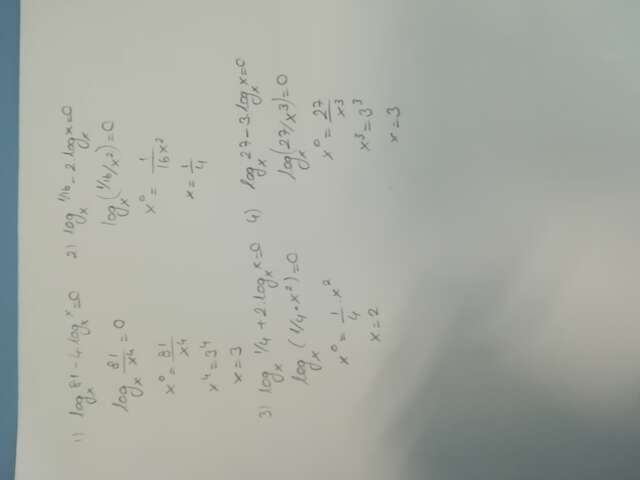 1) logₓ 81 - 4·logₓ x = 0
logₓ 81/x⁴ = 0
x⁰ = 81/x⁴
x⁴ = 3⁴
x = 3
2) logₓ 1/16 - 2·logₓ x = 0
logₓ (1/16/x²) = 0
x⁰ = 1/16x²
x = 1/4
3) logₓ 1/4 + 2·logₓ x = 0
logₓ (1/4·x²) = 0
x⁰ = 1/4·x²
x = 2
4) logₓ 27 - 3·logₓ x = 0
logₓ (27/x³) = 0
x⁰ = 27/x³
x³ = 3³
x = 3